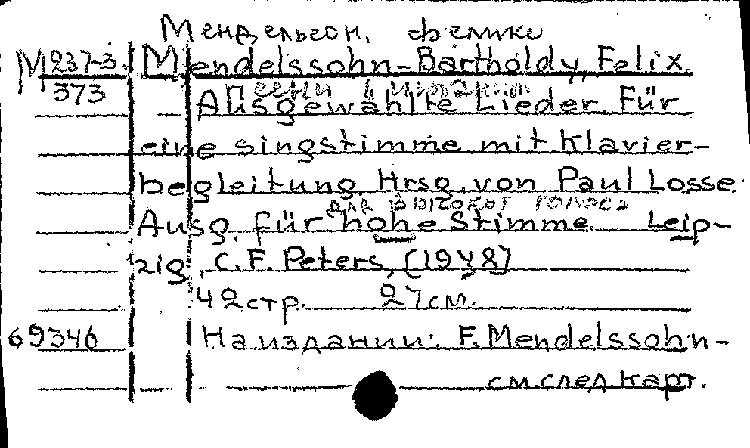 Мендельсон, Феликс
М 237-3 Mendelssohn-Bartholdy, Felix.
373
Песни
Ausgewählte Lieder für
eine singstimme mit Klavier-
begleitung Hrsg. von Paul Losse.
для высокого голоса
Ausg. für hohe Stimme. Leip-
zig, C. F. Peters, [1948]
42стр. 27см.
69346 На издании: F. Mendelssohn-
см след карт.